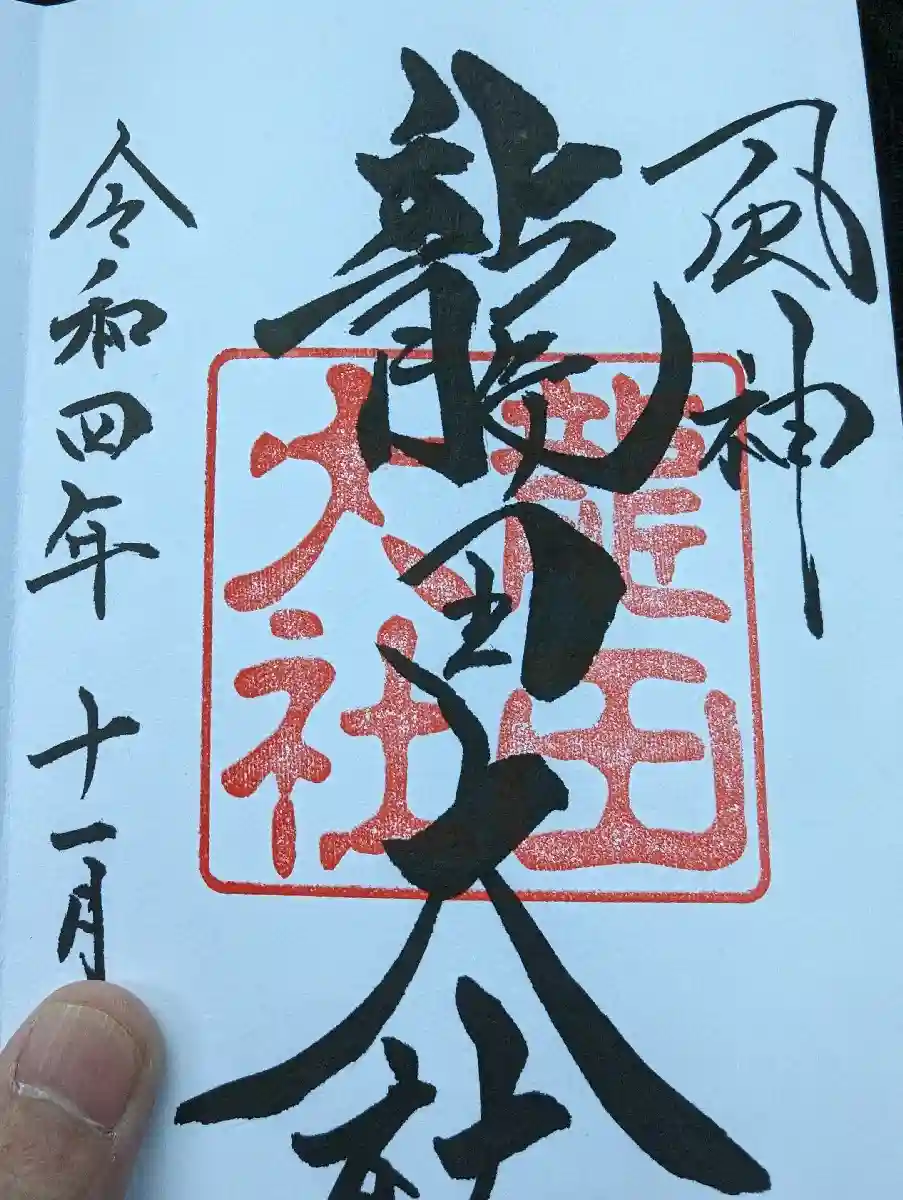 風神
龍田大社
龍田
大社
令和四年 十一月